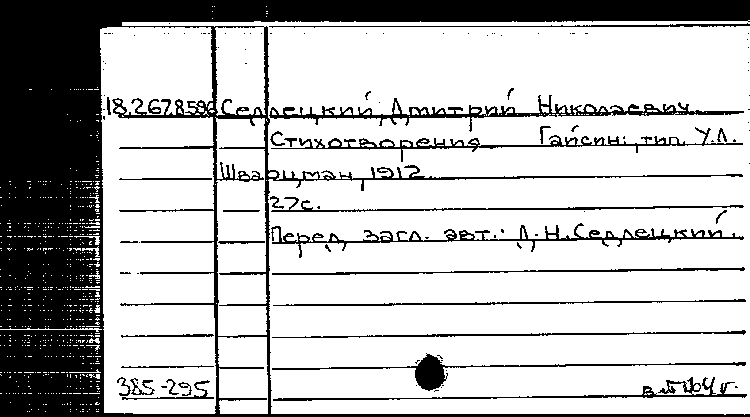 18.267.8596 Седлецкий, Дмитрий Николаевич.
Стихотворения Гайсин:, тип. У.Л.
Шварцман, 1912.
27с.
Перед загл. авт.: Д.Н.Седлецкий.
385-295